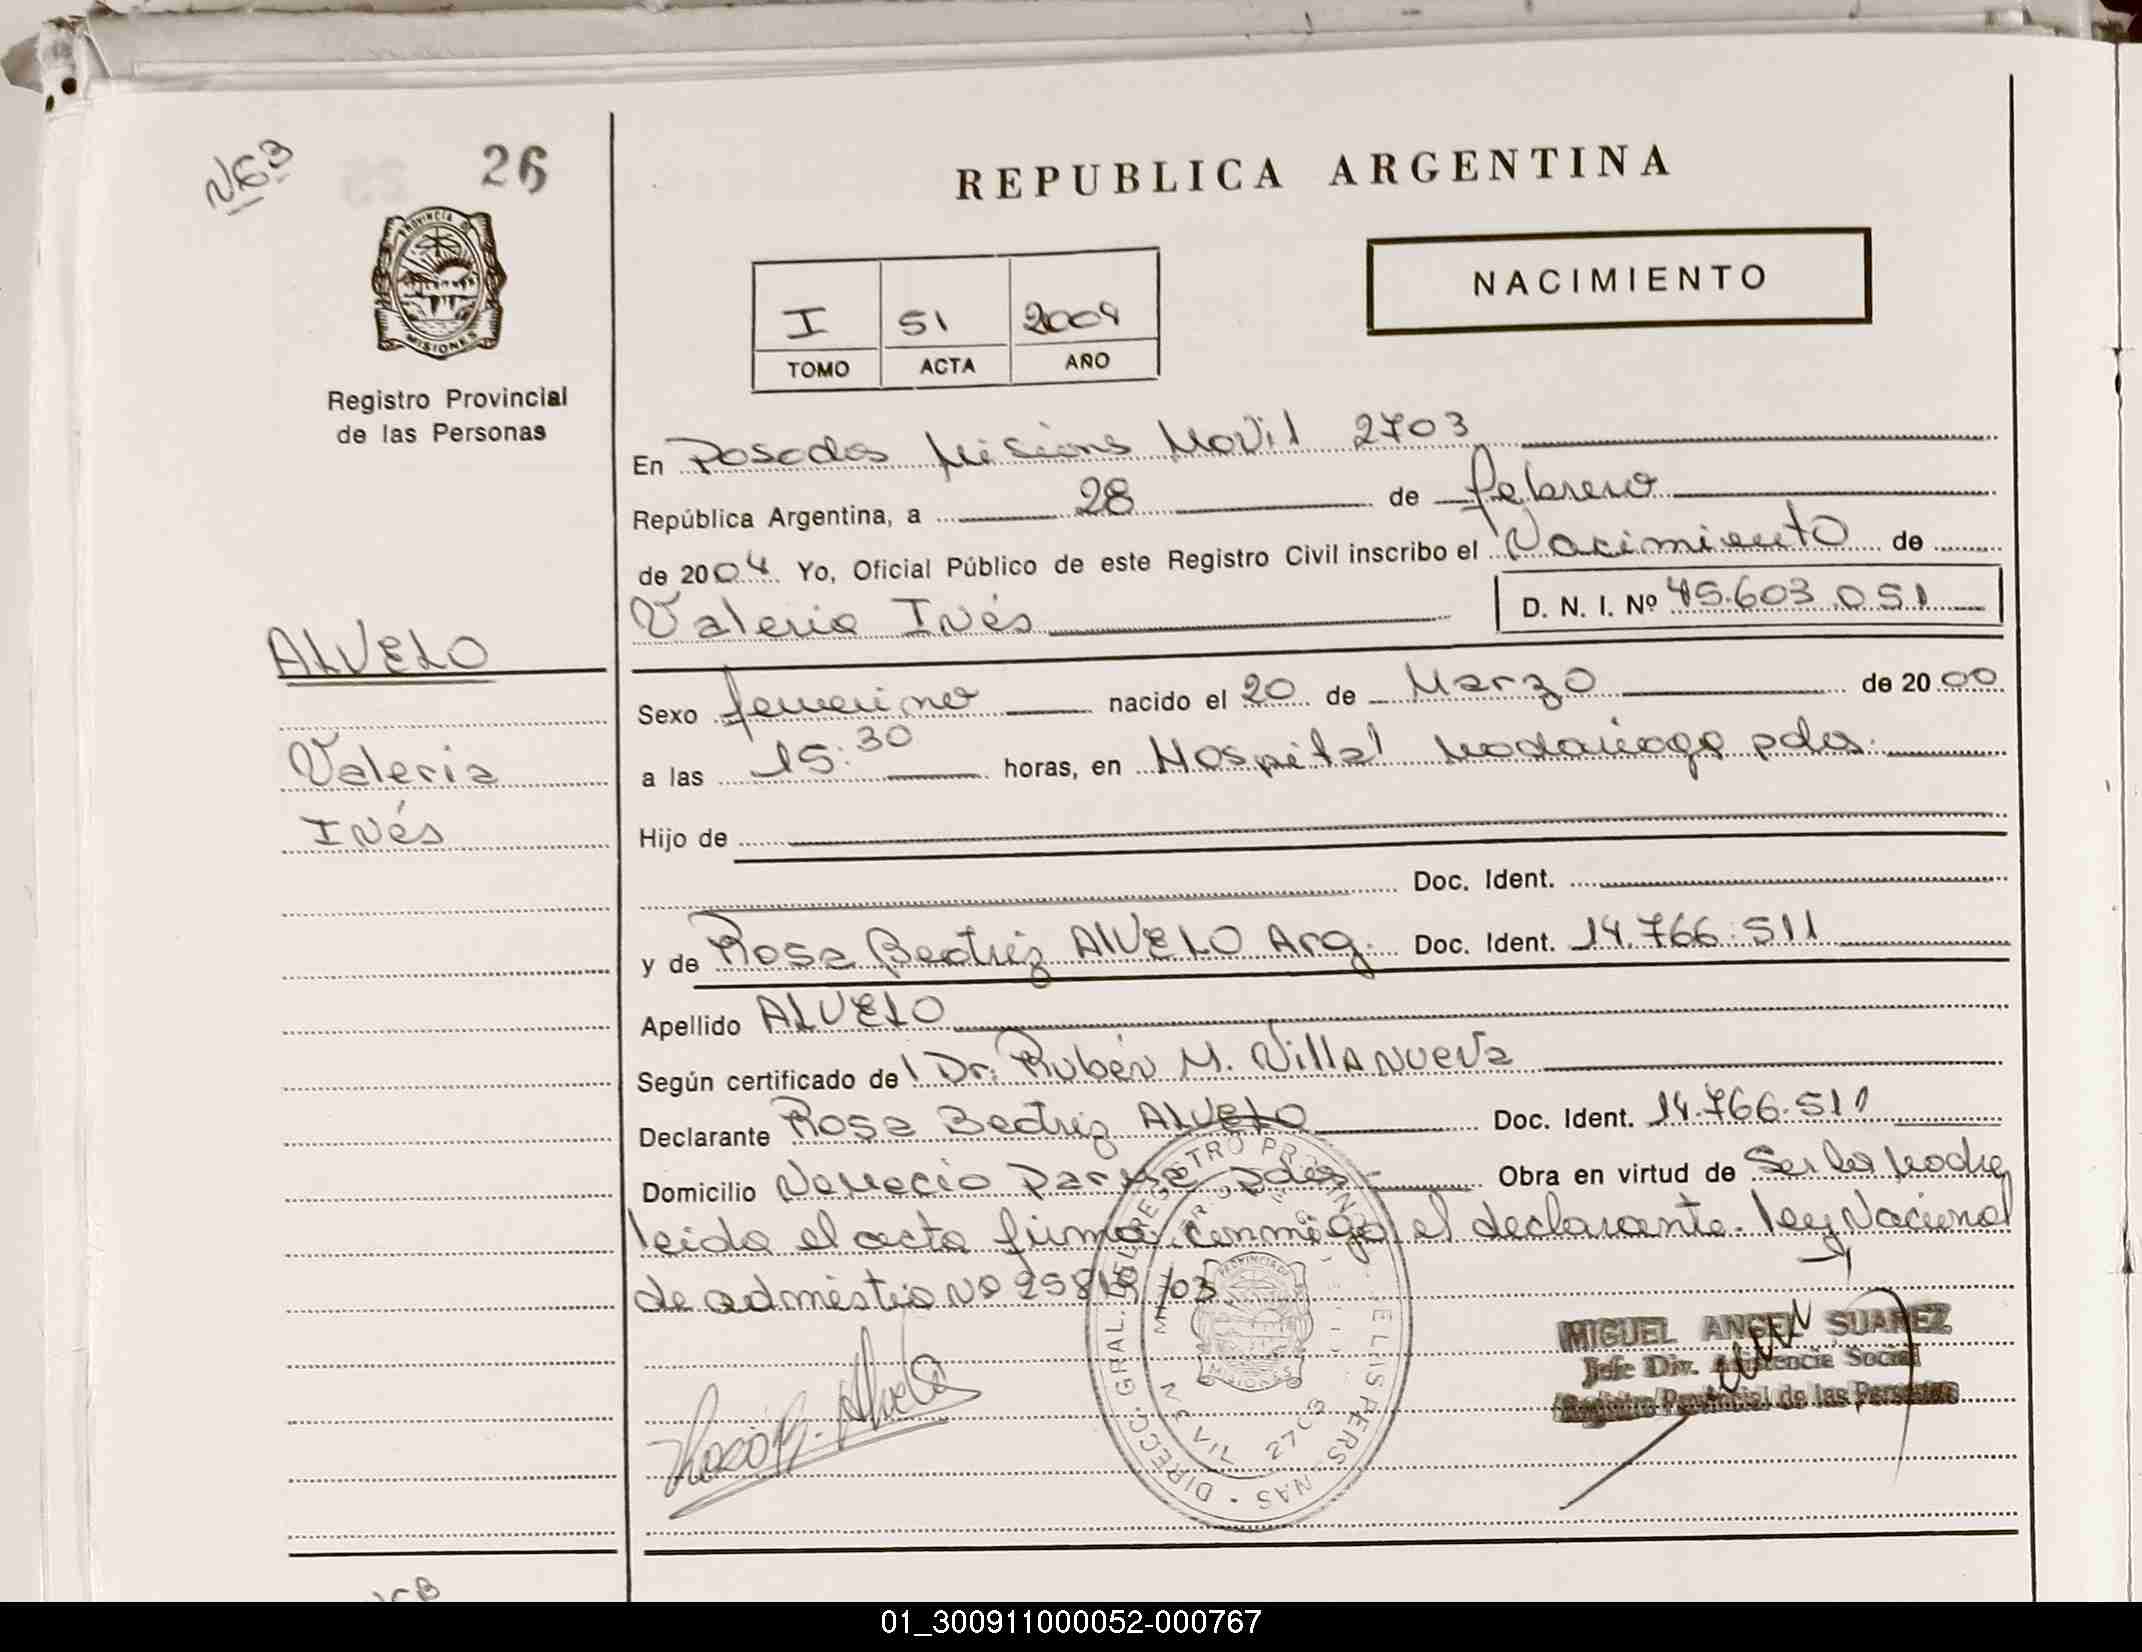 NG3
26
REPUBLICA ARGENTINA
PROVINCIA DE
MISIONES
Registro Provincial
de las Personas
NACIMIENTO
I 51 2004
TOMO ACTA AÑO
En Posadas Misions Movil 2703
República Argentina, a 28 de febrero
de 2004 Yo, Oficial Público de este Registro Civil inscribo el Nacimiento de
Valeria Inés D. N. I. Nº 45.603.051
ALVELO
Valeria
Inés
Sexo femenino nacido el 20 de Marzo de 2000
a las 15:30 horas, en Hospital Madariaga pdas.
Hijo de
Doc. Ident.
y de Rosa Beatriz AlVELO Arg. Doc. Ident. 14.766.511
Apellido ALVELO
Según certificado del Dr. Rubén M. Villanueva
Declarante Rosa Beatriz ALVELO Doc. Ident. 14.766.511
Domicilio pdas Obra en virtud de Ser la Madre
leida el acta firma conmigo el declarante. ley Nacional
de admistia Nº 25819/03
MIGUEL ANGEL SUAREZ
Jefe Div. Asistencia Social
Registro Provincial de las Personas
01_300911000052-000767